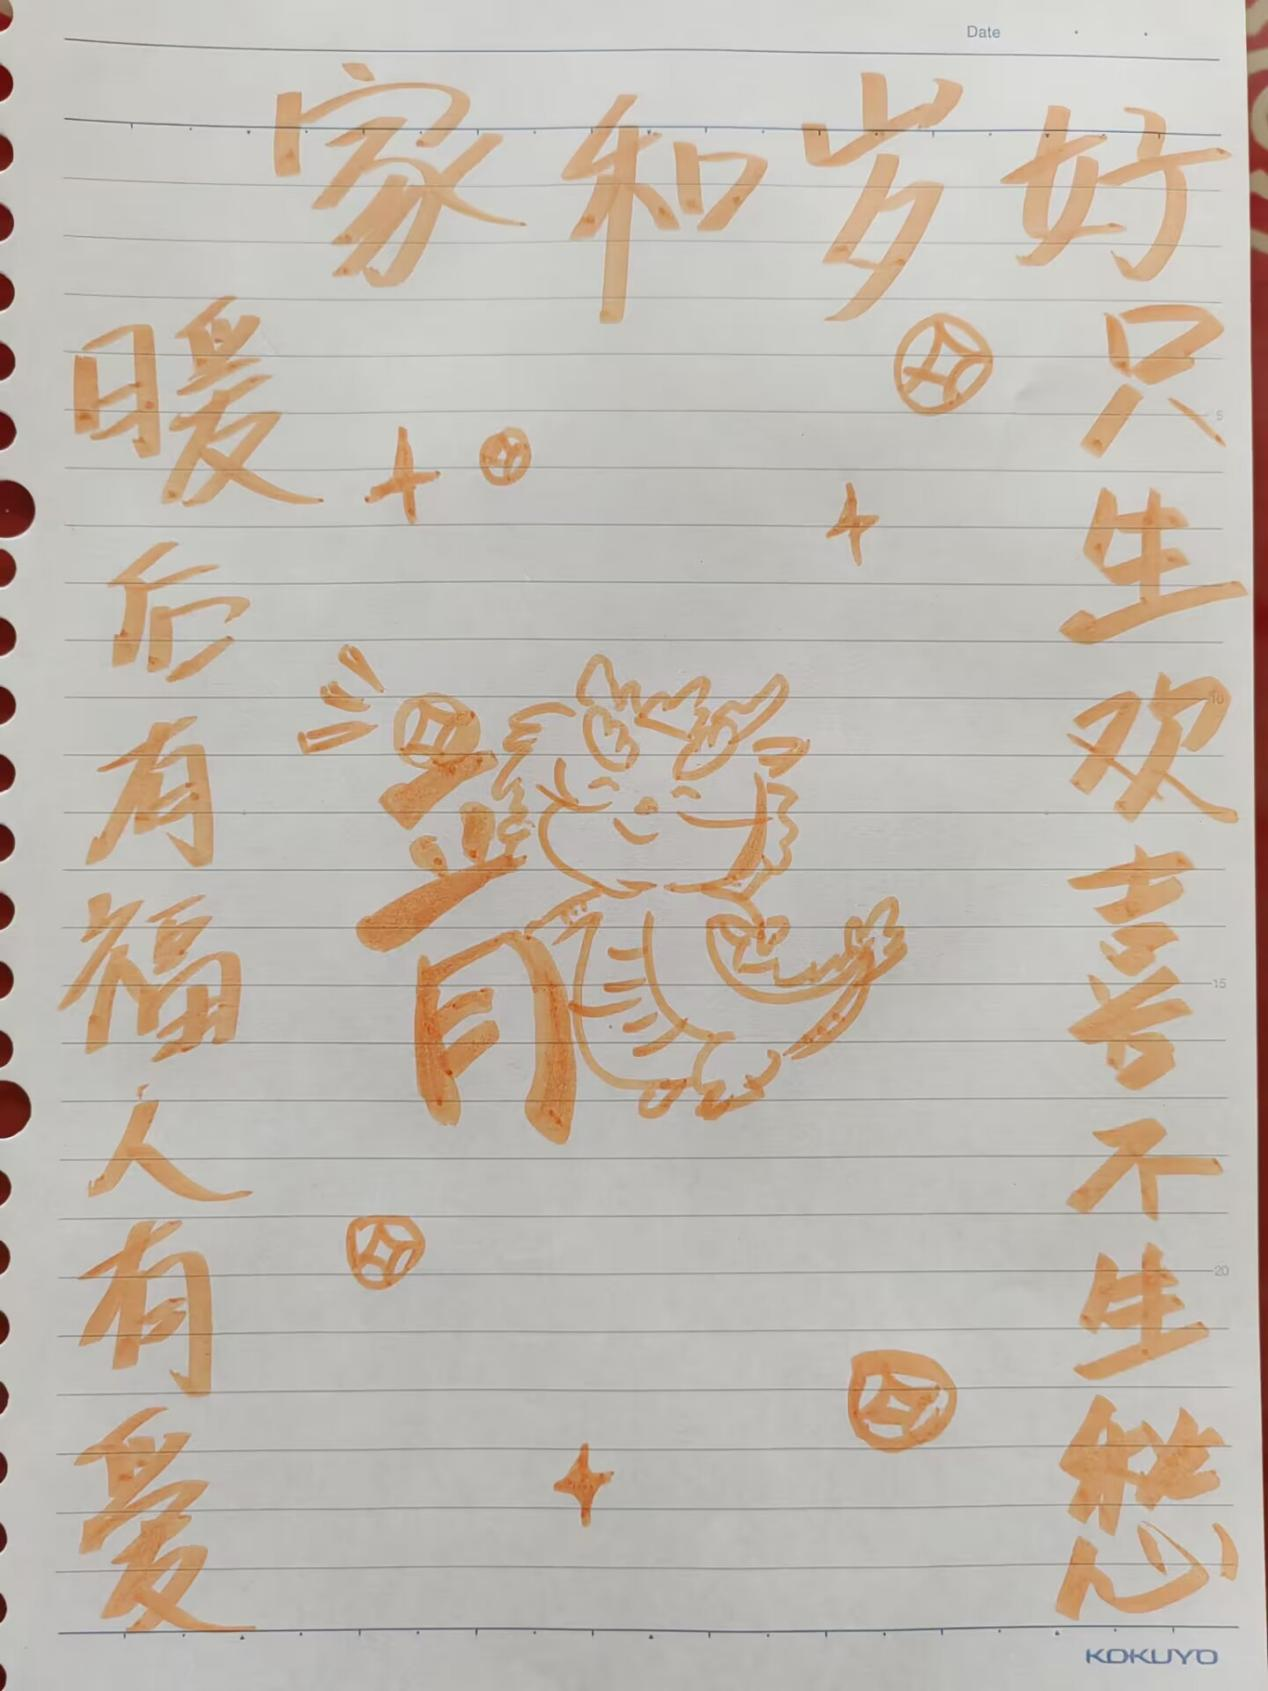 Date
家和岁好
只生欢喜不生愁
暖后有福人有爱
5
10
15
20
KOKUYO